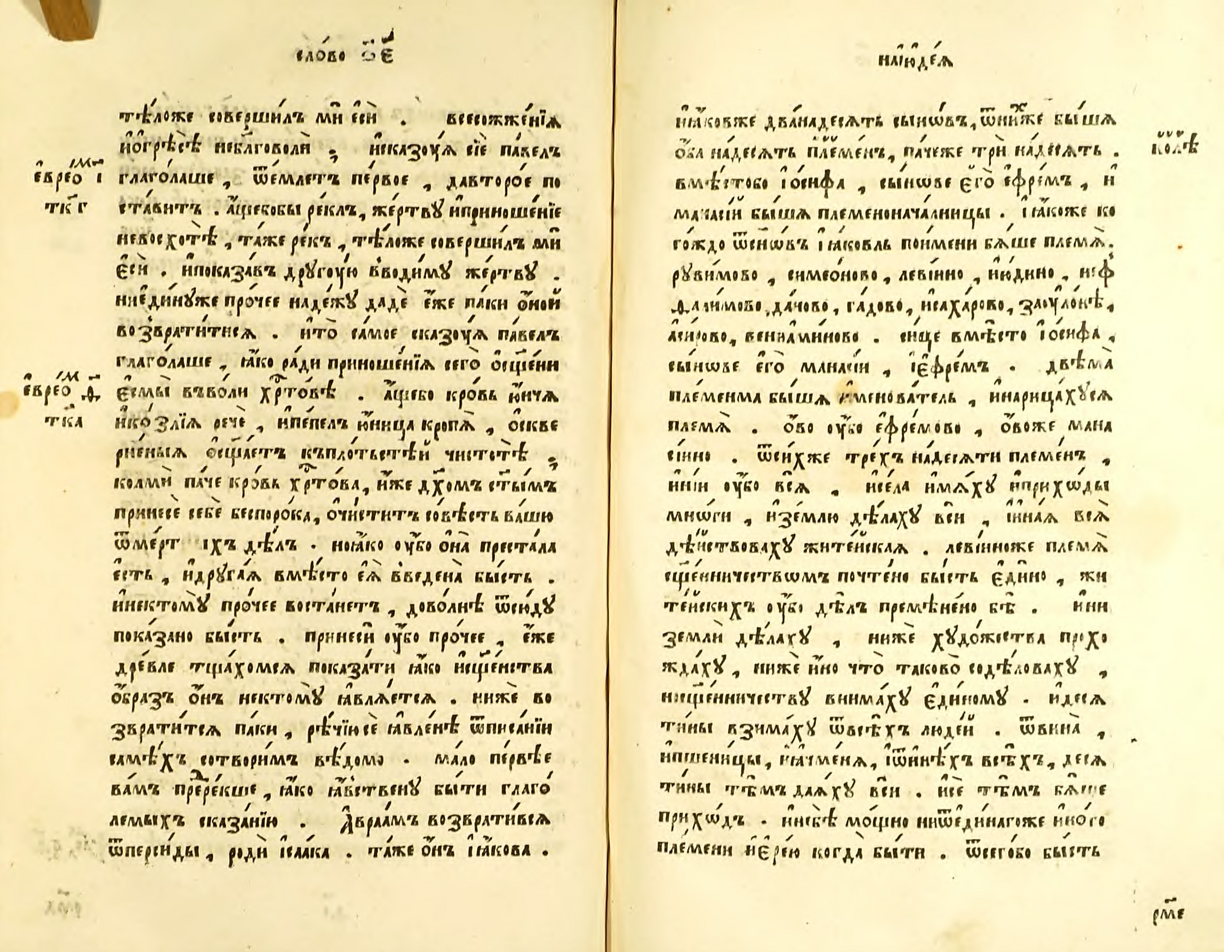 сло́во ѿ є҃
тѣ́ложе соверши́лъ мѝ єсѝ . всесожже́нїѧ
и҆огрѣсѣ̀ небл҃говолѝ ; и҆сказꙋ́ѧ сїѐ па́велъ
є҆вре́ѡ і
глаго́лаше , ѿе́млетъ пе́рвое , давторо́е по
тк҃г
ста́витъ . а҆́щебобы ре́клъ, же́ртвꙋ и҆приноше́нїе
невосхотѣ̀ , та́же ре́къ , тѣ́ложе соверши́лъ мѝ
є҆сѝ . и҆показа́въ дрꙋгꙋ́ю вводи́мꙋ же́ртвꙋ .
ниеди́нꙋже про́чее наде́жꙋ дадѐ є҆́же па́ки о҆́ной
возврати́тисѧ . и҆то̀ са́мое сказꙋ́ѧ па́велъ
глаго́лаше , ꙗ҆́ко ра́ди приноше́нїѧ сего̀ ѡ҆сщ҃е́ни
є҆вре́ѡ
є҆смы̀ въво́ли хрⷭ҇то́вѣ . а҆́щебо кро́вь ю҆́нчѧ
тк҃а
и҆ко́злїѧ речѐ , и҆пе́пелъ ю҆́ница кропѧ̀ , ѡ҆скве
рне́ныѧ ѡ҆сщ҃а́етъ къплотьстѣ́й чистотѣ̀ ;
колмѝ па́че кро́вь хрⷭ҇то́ва, и҆́же дх҃омъ ст҃ы́мъ
принесѐ себѐ беспоро́ка, ѡ҆чи́ститъ со́вѣсть ва́шꙋ
ѿме́рт ıхъ дѣ́лъ . ноꙗ҆́ко ᲂу҆́бо ѻ҆на̀ преста́ла
є҆́сть , и҆дрꙋга́ѧ вмѣ́сто є҆ѧ̀ введена̀ бы́сть .
и҆некто́мꙋ про́чее воста́нетъ , дово́лнѣ ѿсю́дꙋ
пока́зано бы́сть . принесѝ ᲂу҆́бо про́чее , є҆́же
дре́вле тща́хомсѧ показа́ти ꙗ҆́ко и҆сщ҃е́нства
ѻ҆́бразъ ѻ҆́нъ нектомꙋ̀ ꙗ҆влѧ́етсѧ . нижѐ во
звратитсѧ па́ки , рѣ́чїюсѐ ꙗ҆вле́нѣ ѿписа́нїи
самѣ́хъ сотвори́мъ вѣ́домо . ма́ло пе́рвѣе
ва́мъ пре́рекше , ꙗ҆́ко ꙗ҆́вственꙋ бы́ти глаго́
лемыхъ сказа́нїю . А҆враа́мъ возврати́всѧ
ѿперси́ды , родѝ і҆саа́ка . та́же ѻ҆́нъ і҆ꙗ́кова .
наі҆ꙋде́ѧ
и҆ꙗ́ковже двана́десѧть сынѡ́въ, ѿни́хже бы́шѧ
ѻ҆ба̀ на́десѧть племе́нъ, па́чеже трѝ на́десѧть .
вмѣ́стобо і҆ѡ́сифа , сы́новe є҆гѡ̀ є҆фре́мъ , и҆
манасі́й бы́шѧ племенонача́лницы . і҆ꙗ́коже ко
гождо ѿсынѡ́въ і҆ꙗ́ковль поимени бѧ́ше пле́мѧ.
рꙋви́мово , симео́ново , леві́ино , и҆ю́дино , неф
ѳали́мово , да́ново , га́дово , и҆саха́рово , заꙋло́нѣ ,
а҆си́рово, венїами́ново . си́це вмѣ́сто і҆ѡ́сифа ,
сы́нове є҆гѡ̀ мана́сїи , і҆є҆фре́мъ . двѣма̀
племенма бы́шѧ и҆менова́тель , и҆нарица́хꙋсѧ
пле́мѧ . ѻ҆́во ᲂу҆́бо є҆фре́мово , ѻ҆́воже мана
сі́ино . ѿси́хже тре́хъ на́десѧти племе́нъ ,
и҆ні́и ᲂу҆́бо всѧ̀ , и҆се́ла и҆мѧ́хꙋ и҆прихѡ́ды
мно́ги , и҆зе́млю дѣ́лахꙋ всѝ , и҆и҆на́ѧ всѧ̀
дѣ́йствовахꙋ жите́йскаѧ . леві́иноже пле́мѧ
сщ҃е́нничествомъ почте́но бы́сть є҆ди́но , жи
те́йскихъ ᲂу҆́бо дѣ́лъ премѣне́но бѣ̀ . и҆ни
землѝ дѣ́лахꙋ , нижѐ хꙋдо́жества прохо
жда́хꙋ , нижѐ и҆́но что̀ таково̀ содѣ́ловахꙋ ,
нисщ҃е́нничествꙋ внима́хꙋ є҆ди́номꙋ . и҆десѧ
ти́ны взима́хꙋ ѿвсѣ́хъ люде́й . ѿвина̀ ,
и҆пшени́цы, и҆ꙗчме́нѧ, і҆ѿи҆нѣ́хъ всѣ́хъ, десѧ
ти́ны тѣ́мъ даѧ́хꙋ всѝ . и҆сѐ тѣ́мъ бѧ́ше
прихѡ́дъ . и҆небѣ̀ мо́щно ниѿеди́нагоже и҆но́го
пле́мени и҆є҆ре́ю когда̀ бы́ти . ѿсего́бо бы́сть
рм҃е